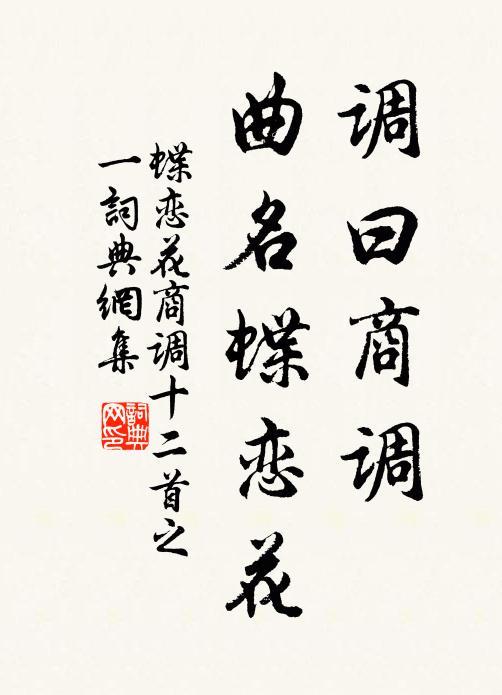 调曰商调
曲名蝶恋花
蝶恋花商调十二首之
一詞典網集
詞典
网印